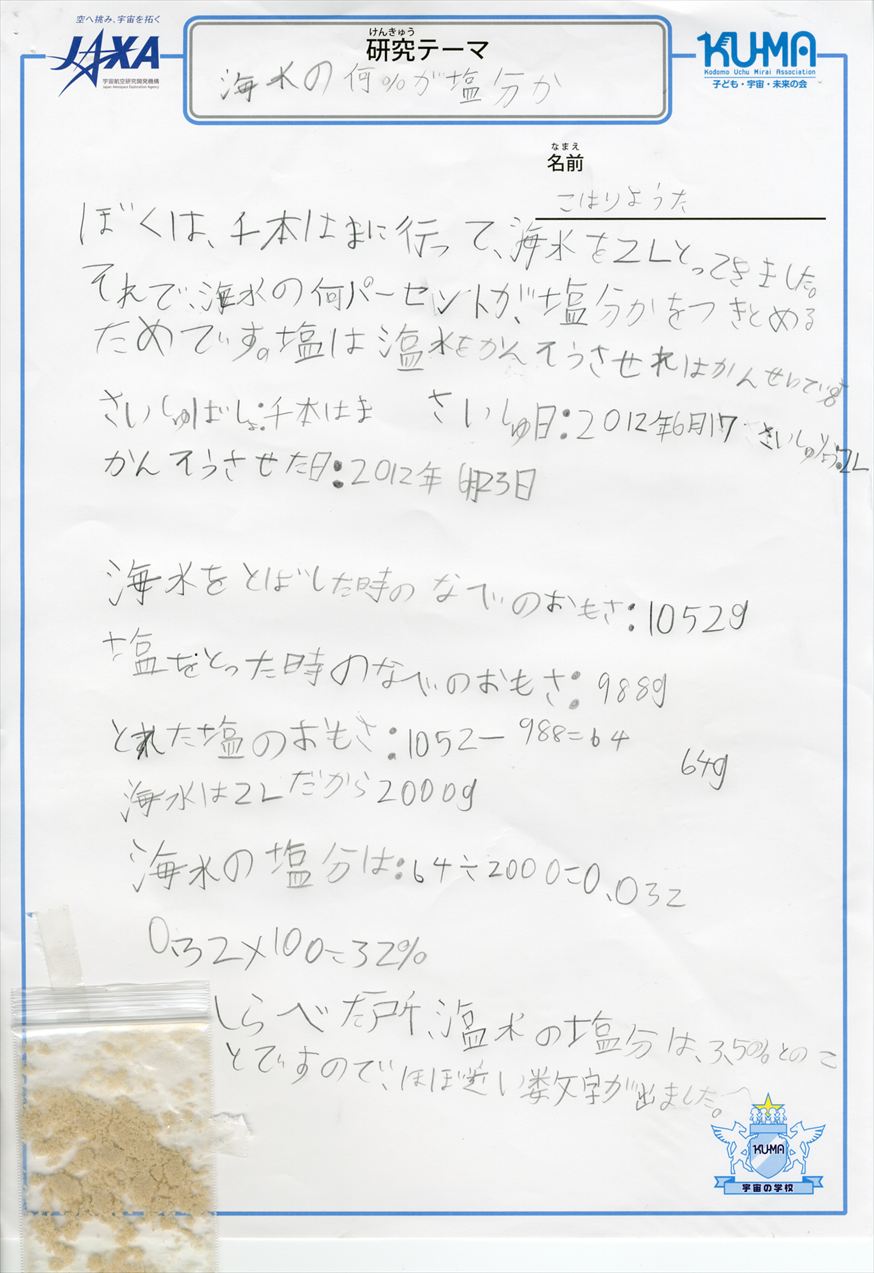 空へ挑み、宇宙を拓く
JAXA
宇宙航空研究開発機構
Japan Aerospace Exploration Agency
けんきゅう
研究テーマ
海水の何%が塩分か
KU-MA
Kodomo Uchu Mirai Association
子ども・宇宙・未来の会
なまえ
名前
こはりようた
ぼくは、千本はまに行って、海水を2Lとってきました。
それで、海水の何パーセントが、塩分かをつきとめる
ためです。塩は塩水をかんそうさせればかんせいです。
さいしゅばしょ:千本はま さいしゅ日:2012年6月17 さいしゅりょう:2L
かんそうさせた日:2012年6月23日
海水をとばした時のなべのおもさ:1052g
塩をとった時のなべのおもさ:988g
とれた塩のおもさ:1052-988=64
64g
海水は2Lだから2000g
海水の塩分は:64÷2000=0.032
0.32×100=32%
しらべた所、塩水の塩分は、3.50%とのこ
とですので、ほぼ近い数字が出ました。
KU-MA
宇宙の学校